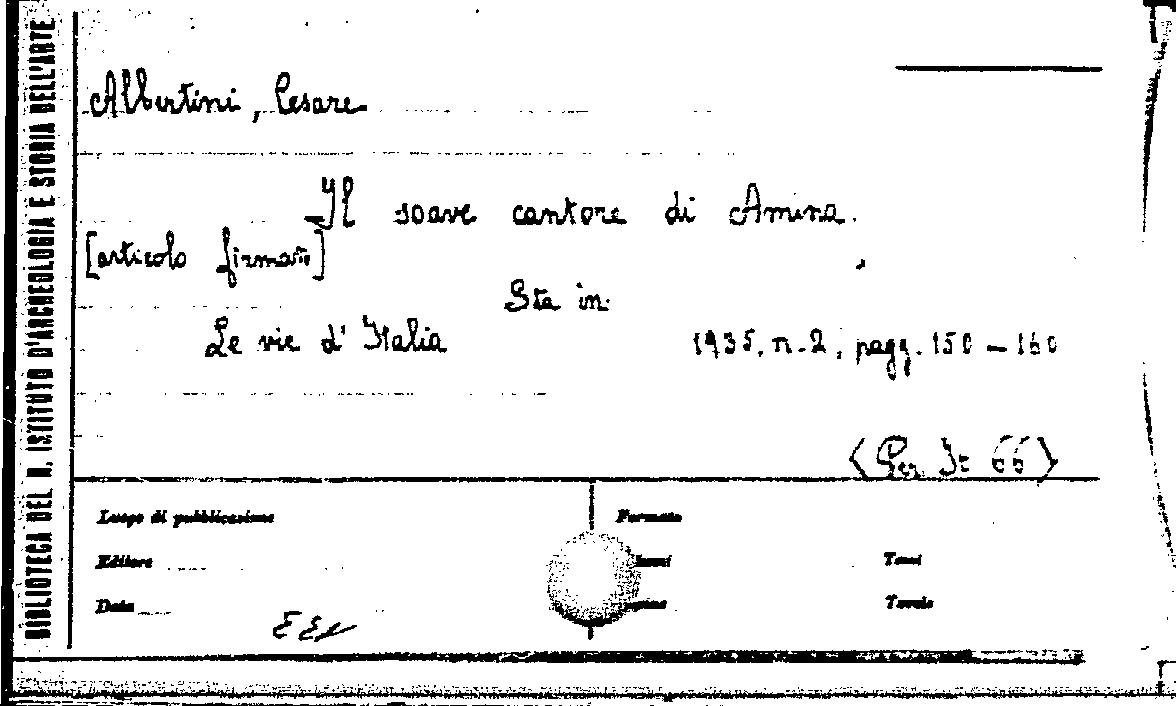 BIBLIOTECA DEL R. ISTITUTO D'ARCHEOLOGIA E STORIA DELL'ARTE
Albertini, Cesare
Il soave cantore di Amina.
[articolo firmato]
Sta in:
Le vie d'Italia
1935, n. 2, pagg. 150 — 160
<Per It 66>
Luogo di pubblicazione
Formato
Editore
Tomi
Data
Tavole